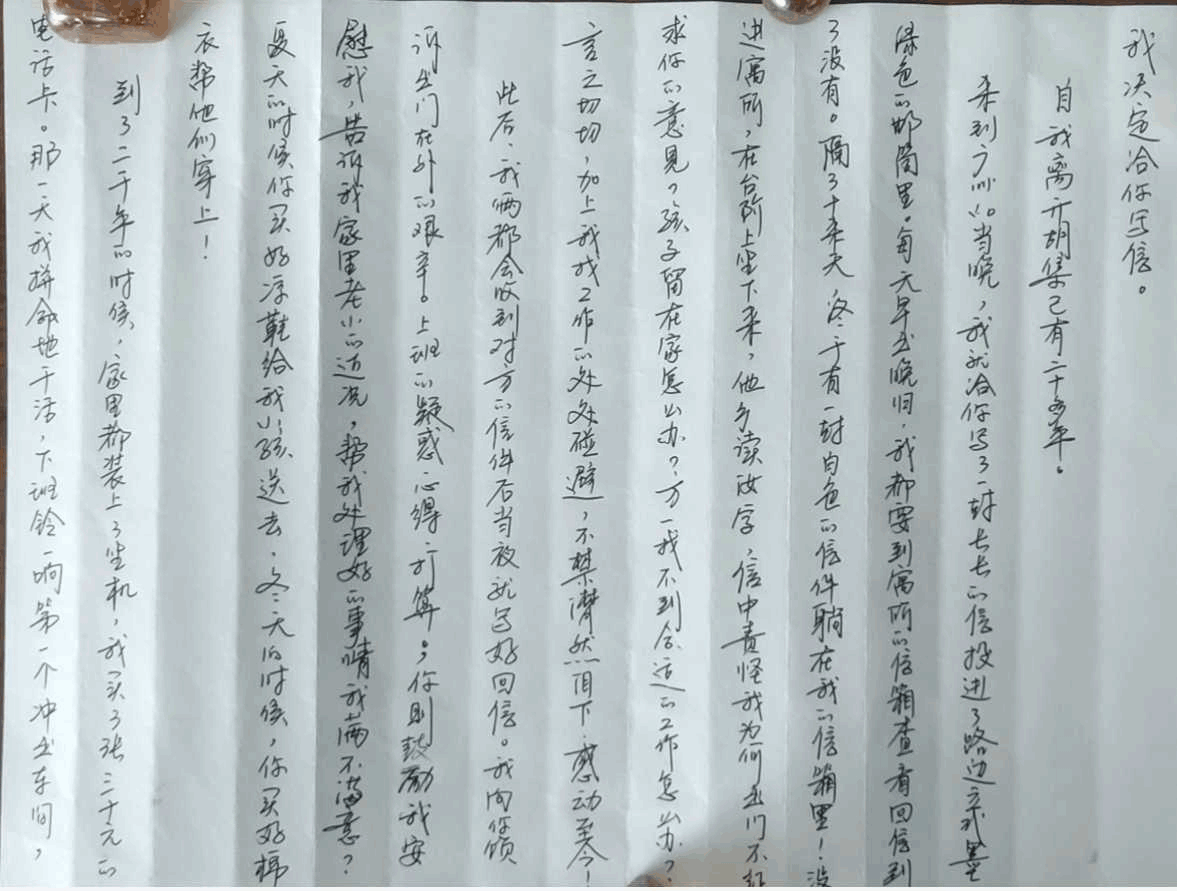 我决定给你写信。
自我离开胡集已有二十多年。
来到广州的当晚，我就给你写了一封长长的信投进了路边那墨
绿色的邮筒里。每天早出晚归，我都要到寓所的信箱查看回信到
了没有。隔了十来天，终于有一封白色的信件躺在我的信箱里！没
进寓所，在台阶上坐下来，他乡读汝字，信中责怪我为何出门不征
求你的意见？孩子留在家怎么办？万一找不到合适的工作怎么办？
言之切切，加上我找工作的处处碰避，不禁潸然泪下，感动至今！
此后，我俩都会收到对方的信件后当夜就写好回信。我向你倾
诉出门在外的艰辛。上班的疑惑、心得、打算。，你则鼓励我安
慰我，告诉我家里老小的近况，帮我处理好的事情我满不满意？
夏天的时候你买好凉鞋给我小孩送去，冬天的时候，你买好棉
衣帮他们穿上！
到了二千年的时候，家里都装上了坐机，我买了张三十元的
电话卡。那一天我拼命地干活，下班铃一响第一个冲出车间，